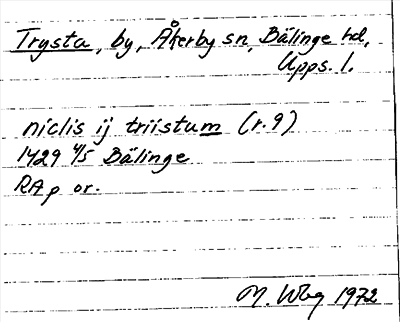 Trysta, by, Åkerby sn, Bälinge hd,
Upps. l.
niclis ij triistum (r. 9)
1429 4/5 Bälinge
RAp or.
M. Wbg 1972